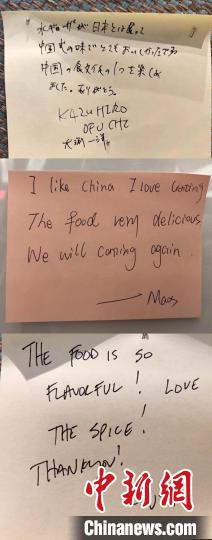 水ギョーザが日本とは違って
中国式の味でとてもおいしかったです
中国の食文化の1つを楽しめ
ました。ありがとう。
KAZUHIRO
OFUCHI
I like China I love
The food very delicious
We will coming again.
Maos
THE FOOD IS SO
FLAVORFUL! LOVE
THE SPICE!
THANK YOU!
中新网
Chinanews.com